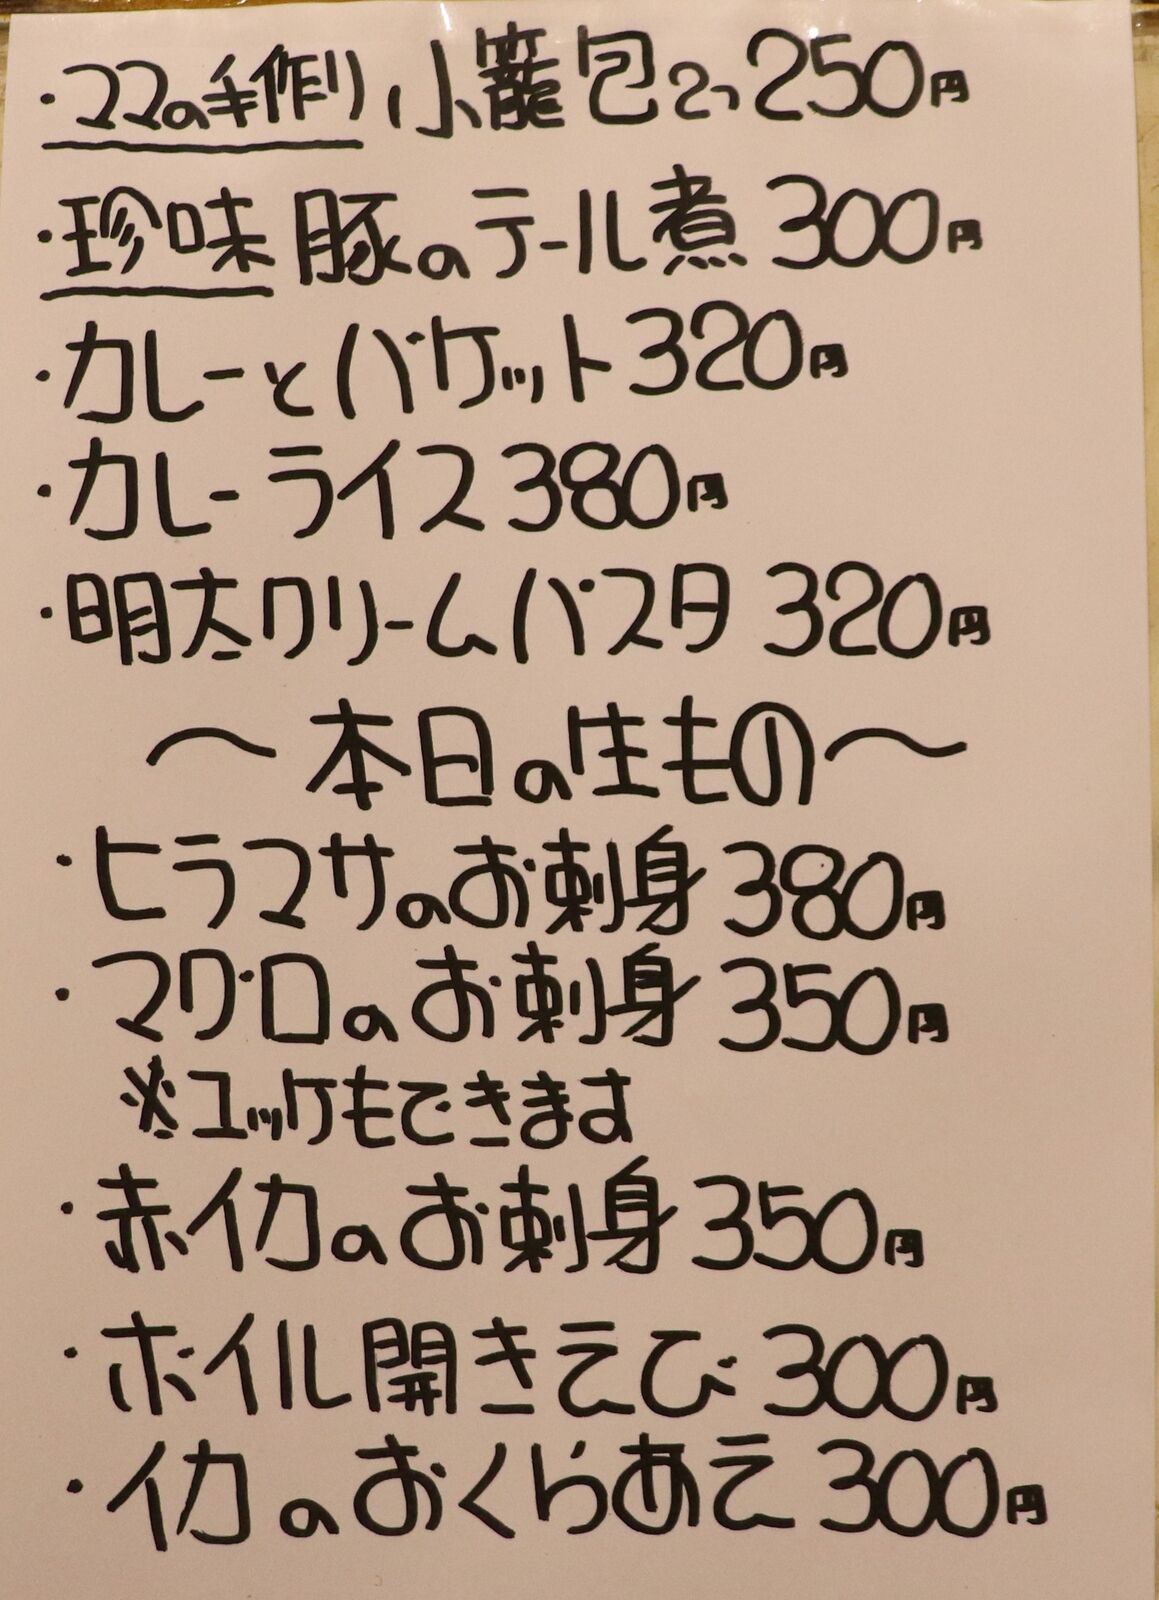 ・ママの手作り 小籠包2つ250円
・珍味 豚のテール煮 300円
・カレーとバケット320円
・カレーライス380円
・明太クリームパスタ 320円
〜本日の生もの〜
・ヒラマサのお刺身 380円
・マグロのお刺身 350円
※ユッケもできます
・赤イカのお刺身 350円
・ボイル開きえび 300円
・イカのおくらあえ 300円